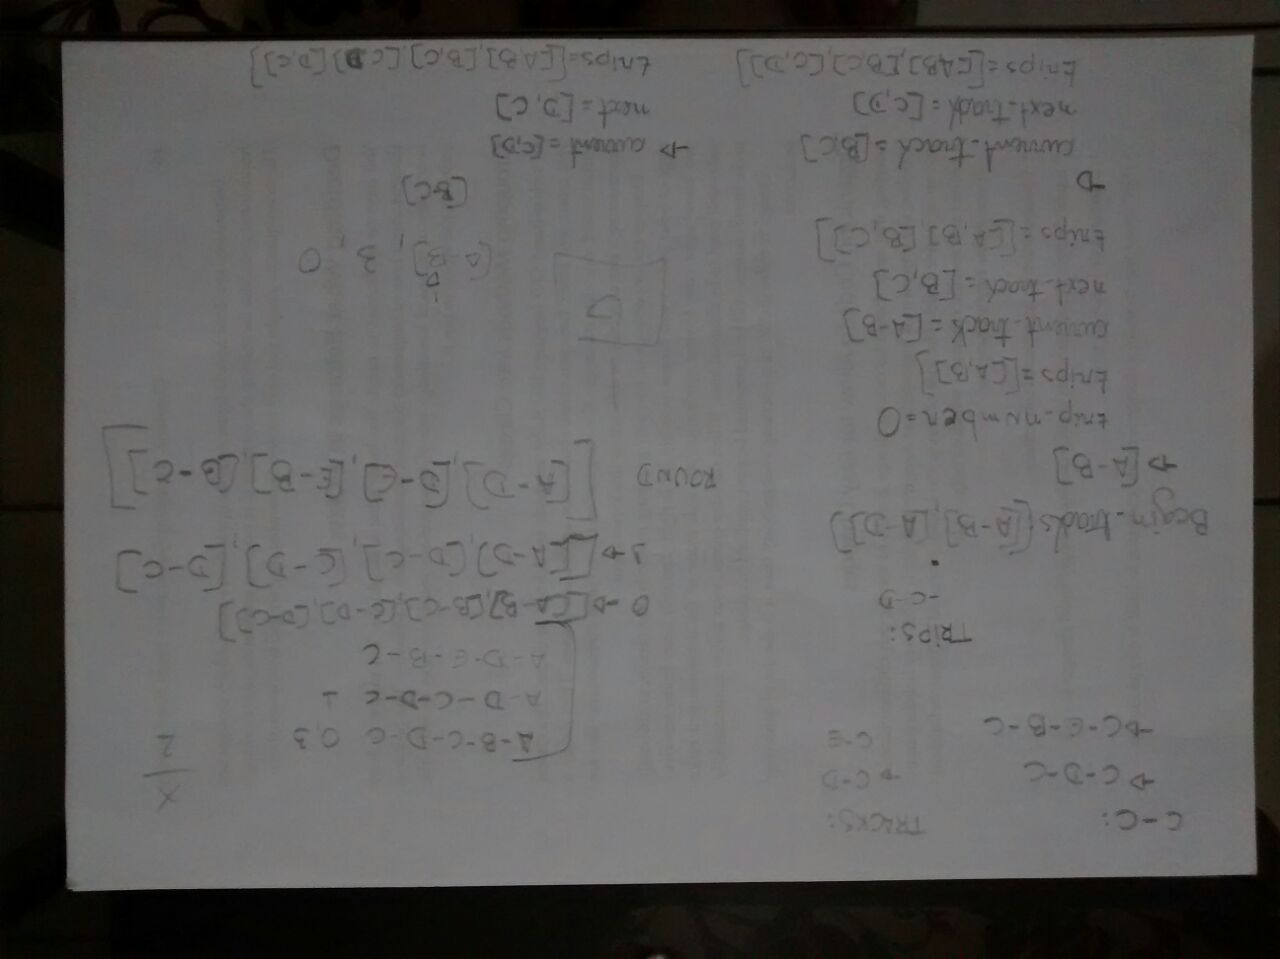 C-C:
→ C-D-C
→ C-E-B-C
TRACKS:
→ C-D
C-E
TRIPS:
-C-D
Begin-tracks [[A-B], [A-D]]
→ [A-B]
trip-number = 0
trips = [[A,B]]
current-track = [A-B]
next-track = [B,C]
trips = [[A,B] [B,C]]
→
current-track = [B,C]
next-track = [C,D]
trips = [[A,B], [B,C], [C,D]]
X
2
A-B-C-D-C 0,3
A-D-C-D-C 1
A-D-E-B-C
0 → [[A-B], [B-C], [C-D], [D-C]]
1 → [[A-D], [D-C], [C-D], [D-C]
ROUND [[A-D], [D-E], [E-B], [B-C]]
[A-B], 3, 0
[BC]
→ current = [C,D]
next = [D,C]
trips = [[A,B], [B,C], [C,D] [D,C]]